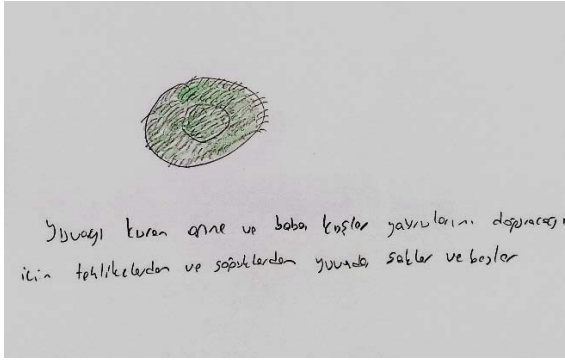 Yuvayı kuran anne ve baba kuşlar yavrularını doğuracağı
için tehlikelerden ve soğuklardan yuvada saklar ve besler